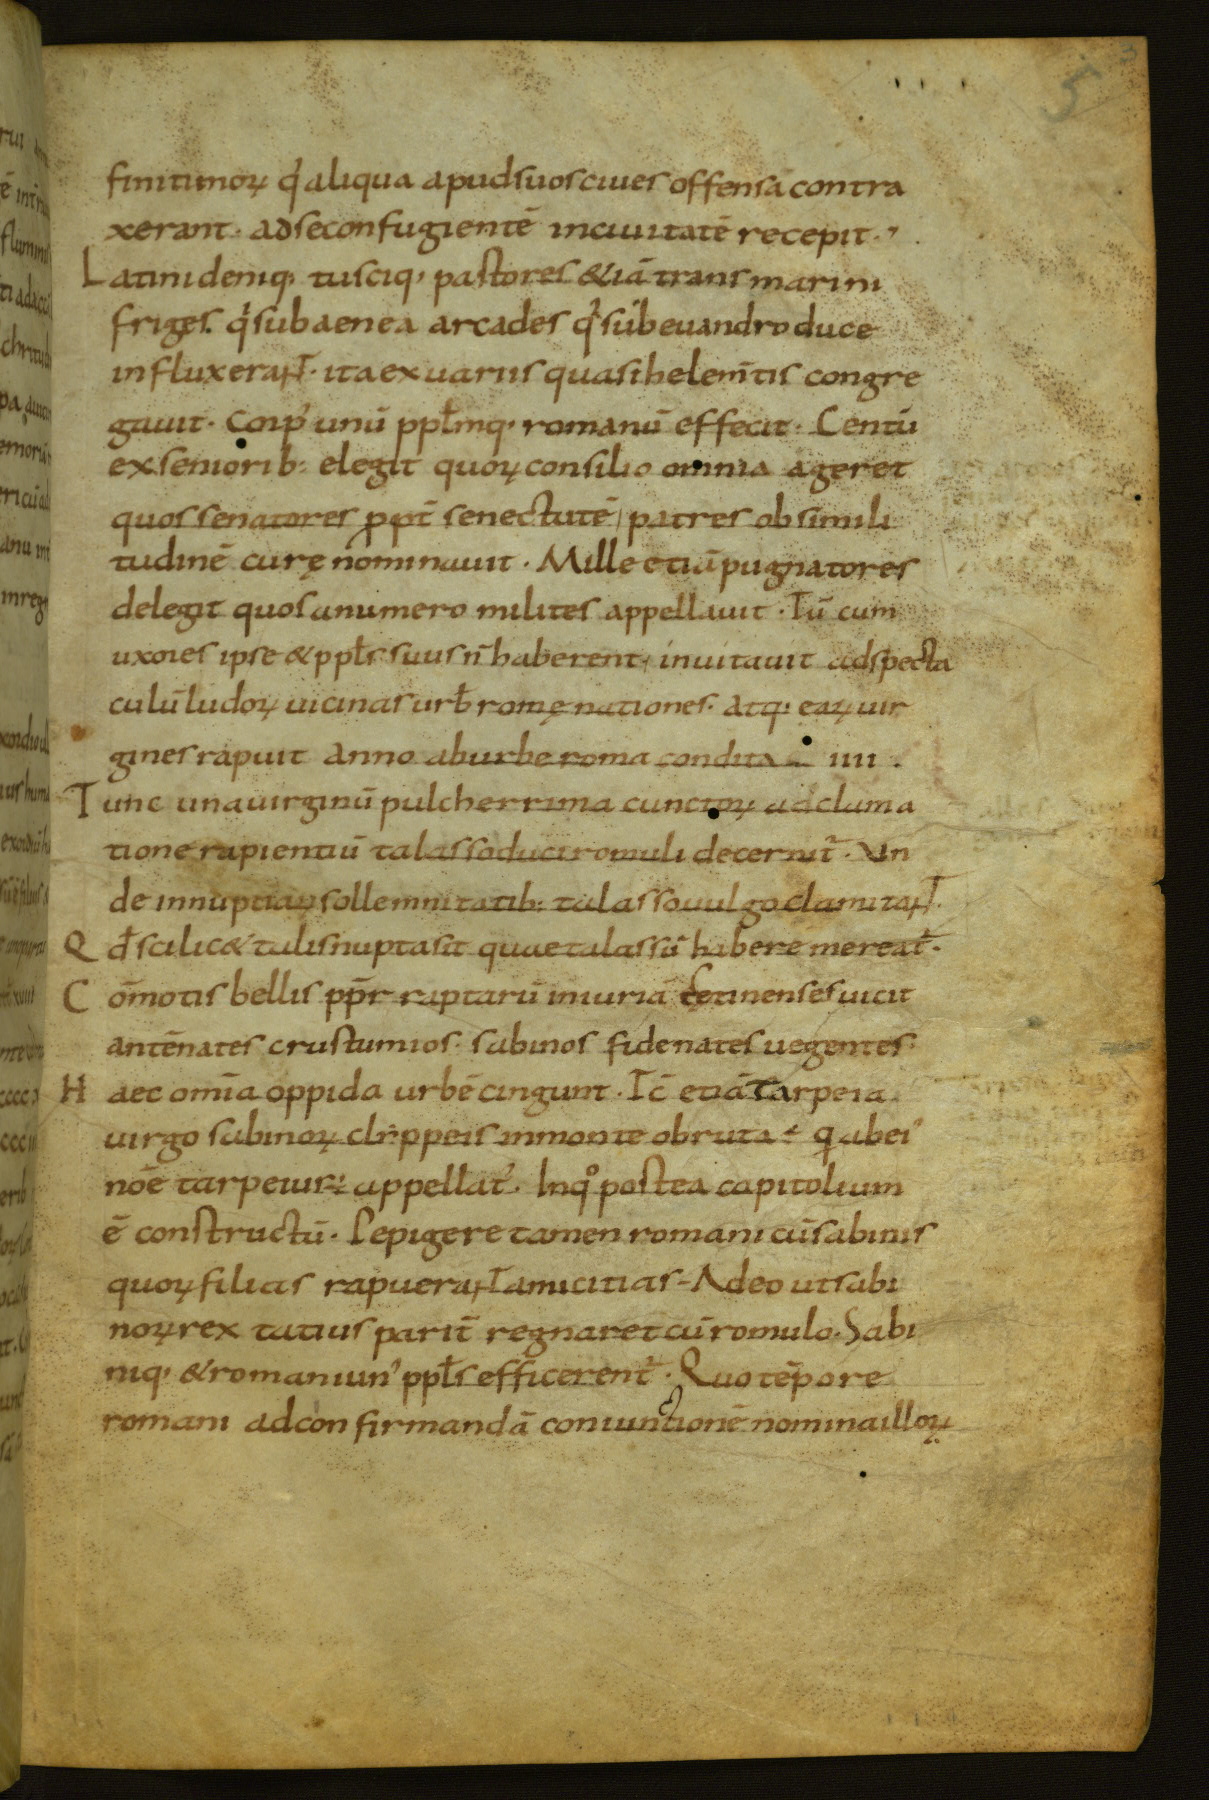 5
finitimorꝝ qͥ aliqua apud suos ciues offensā contra
xerant · ad se confugientē in ciuitatē recepit ·
Latini deniq; tusciq; pastores &iā transmarini
friges · qͥ sub aenea arcades qͥ sub euandro duce
influxerant · ita ex uariis quasi helem̄tis congre
gauit · Corp' unū ppl̄mq; romanū effecit · Centū
ex seniorib; elegit quoꝝ consilio omnia ageret
quos senatores ꝓpt̄ senectutē patres ob simili
tudinē curę nominauit · Mille etiā pugnatores
delegit quos a numero milites appellauit · Tū cum
uxores ipse & ppl̄s suus n̄ haberent, inuitauit ad specta
culū ludoꝝ uicinas urb̄ romę nationes · atq; eaꝝ uir
gines rapuit anno ab urbe roma condita IIII .
Tunc una uirginū pulcherrima cunctoꝝ adclama
tione rapientiū talasso duci romuli decernit̄ · Un
de in nuptiaꝝ sollemnitatib; talasso uulgo clamitant ·
Qd̄ scilic& talis nupta sit quae talassū habere mereat̄ ·
Cōmotis bellis pp̄r raptarū iniuriā cętinenses uicit
antēnates crustumios · sabinos fidenates uegentes ·
Haec omīa oppida urbē cingunt · Tc̄ etiā Tarpeia
uirgo sabinoꝝ clippeis in monte obruta ÷ q̄ ab ei'
nōe tarpeiur; appellat' · In qͦ postea capitolium
ē constructū · Cepigere tamen romani cū sabinis
quoꝝ filias rapuerant amicitias - Adeo ut sabi
noꝝ rex tatius parit̄ regnaret cū romulo · Sabi
niq; & romani un' ppl̄s efficerent̄ · Quo tēpore
romani ad confirmandā coniunctionē nomina illoꝝ